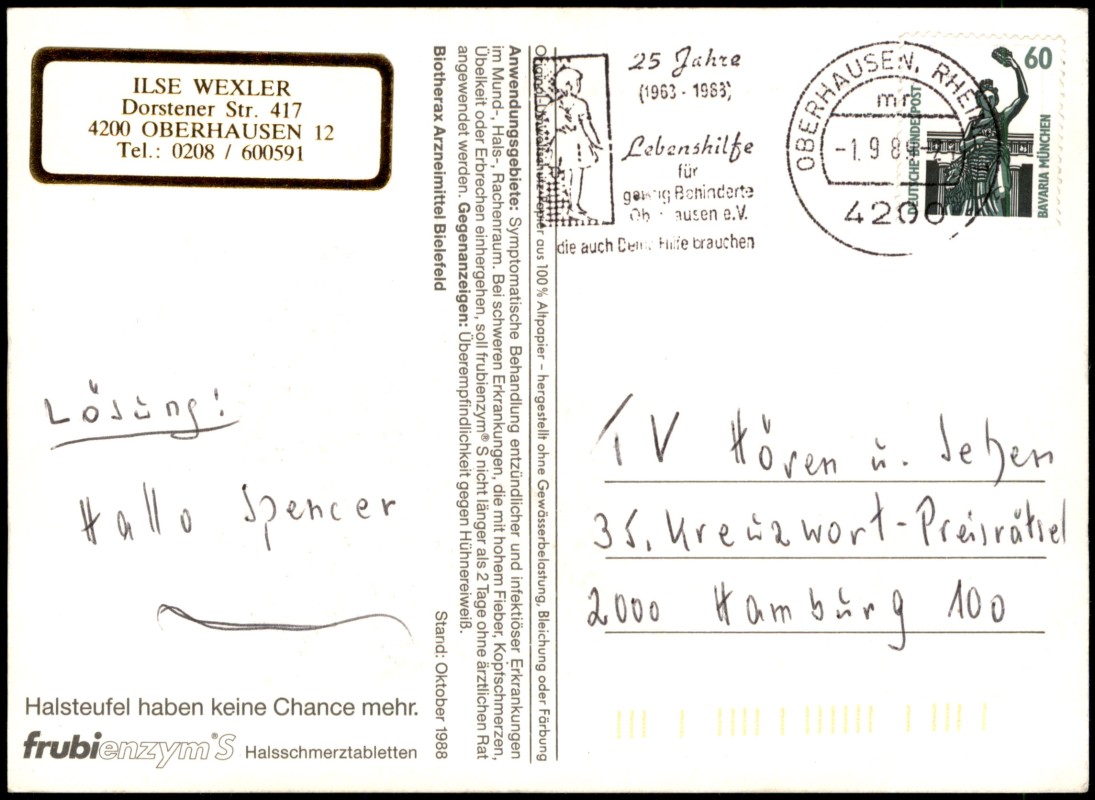 ILSE WEXLER
Dorstener Str. 417
4200 OBERHAUSEN 12
Tel.: 0208 / 600591
Lösung:
Hallo Spencer
Halsteufel haben keine Chance mehr.
frubienzym® S Halsschmerztabletten
Anwendungsgebiete: Symptomatische Behandlung entzündlicher und infektiöser Erkrankungen
im Mund-, Hals-, Rachenraum. Bei schweren Erkrankungen, die mit hohem Fieber, Kopfschmerzen,
Übelkeit oder Erbrechen einhergehen, soll frubienzym® S nicht länger als 2 Tage ohne ärztlichen Rat
angewendet werden. Gegenanzeigen: Überempfindlichkeit gegen Hühnereiweiß.
Biotherax Arzneimittel Bielefeld
Stand: Oktober 1988
aus 100% Altpapier – hergestellt ohne Gewässerbelastung, Bleichung oder Färbung
25 Jahre
(1963 - 1988)
Lebenshilfe
für
geistig Behinderte
Oberhausen e.V.
die auch Deine Hilfe brauchen
OBERHAUSEN, RHEINL
mr
-1.9 89
4200
60
DEUTSCHE BUNDESPOST
BAVARIA MÜNCHEN
TV Hören u. Sehen
35. Kreuzwort-Preisrätsel
2000 Hamburg 100